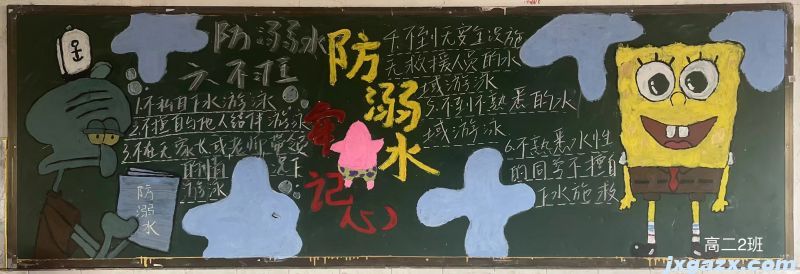 防溺水
六不准
1.不私自下水游泳
2.不擅自与他人结伴游泳
3.不在无家长或老师带领
的情况下
游泳
防溺水
防溺水
牢记心
4.不到无安全设施
无救援人员的水
域游泳
5.不到不熟悉的水
域游泳
6.不熟悉水性
的同学不擅自
下水施救
高二2班
jxqazx.com